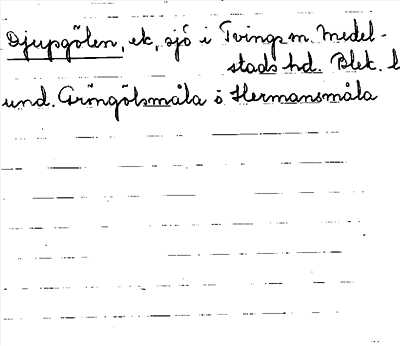 Djupgölen, ek, sjö i Tvings sn. Medel-
stads hd. Blek. l
und. Gröngölsmåla o Hermansmåla